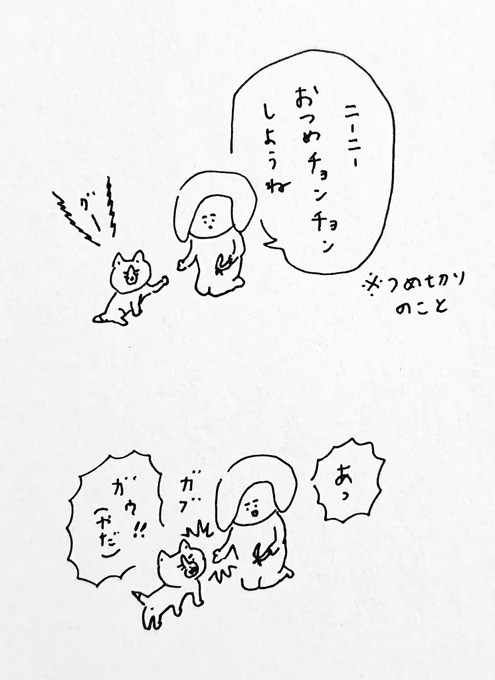 ニーニー
おつめチョンチョン
しようね
グー
※つめ切り
のこと
あっ
ガブ
ガウ!!
(やだ)